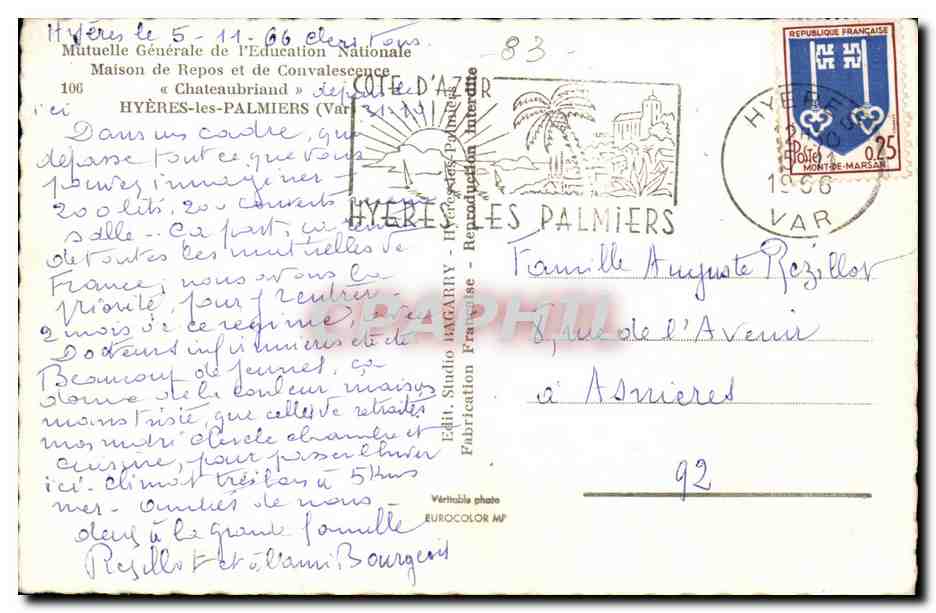 Hyères le 5-11-66 Chers Tous.
Mutuelle Générale de l'Education Nationale
Maison de Repos et de Convalescence
106 « Chateaubriand » depuis le
ici HYÈRES-les-PALMIERS (Var) 31-10
Dans un cadre, qui
dépasse tout ce que vous
pouvez immaginer -
200 lits, 200 couverts
salle - Ca part,
de toutes les mutuelles de
France, nous avons la
priorité, pour rentrer
2 mois de ce régime,
Docteurs infirmières etc
Beaucoup de jeunes, ça
donne de la couleur maison
moins triste, que celles de retraités
mon mari cherche chambre et
cuisine, pour passer l'hiver
ici - climat très bon à 5 Kms
mer - Amitiés de nous
deux à la grande famille
Rezillot et à l'ami Bourgeois
- 83 -
COTE D'AZUR
HYERES LES PALMIERS
Edit. Studio BAGARRY - Hyères-les-Palmiers
Fabrication Française - Reproduction interdite
REPUBLIQUE FRANÇAISE
Postes 0,25
MONT-DE-MARSAN
HYERES
1966
VAR
Famille Auguste Rézillot
8, rue de l'Avenir
à Asnieres
92
Véritable photo
EUROCOLOR MP
CPAPHIL